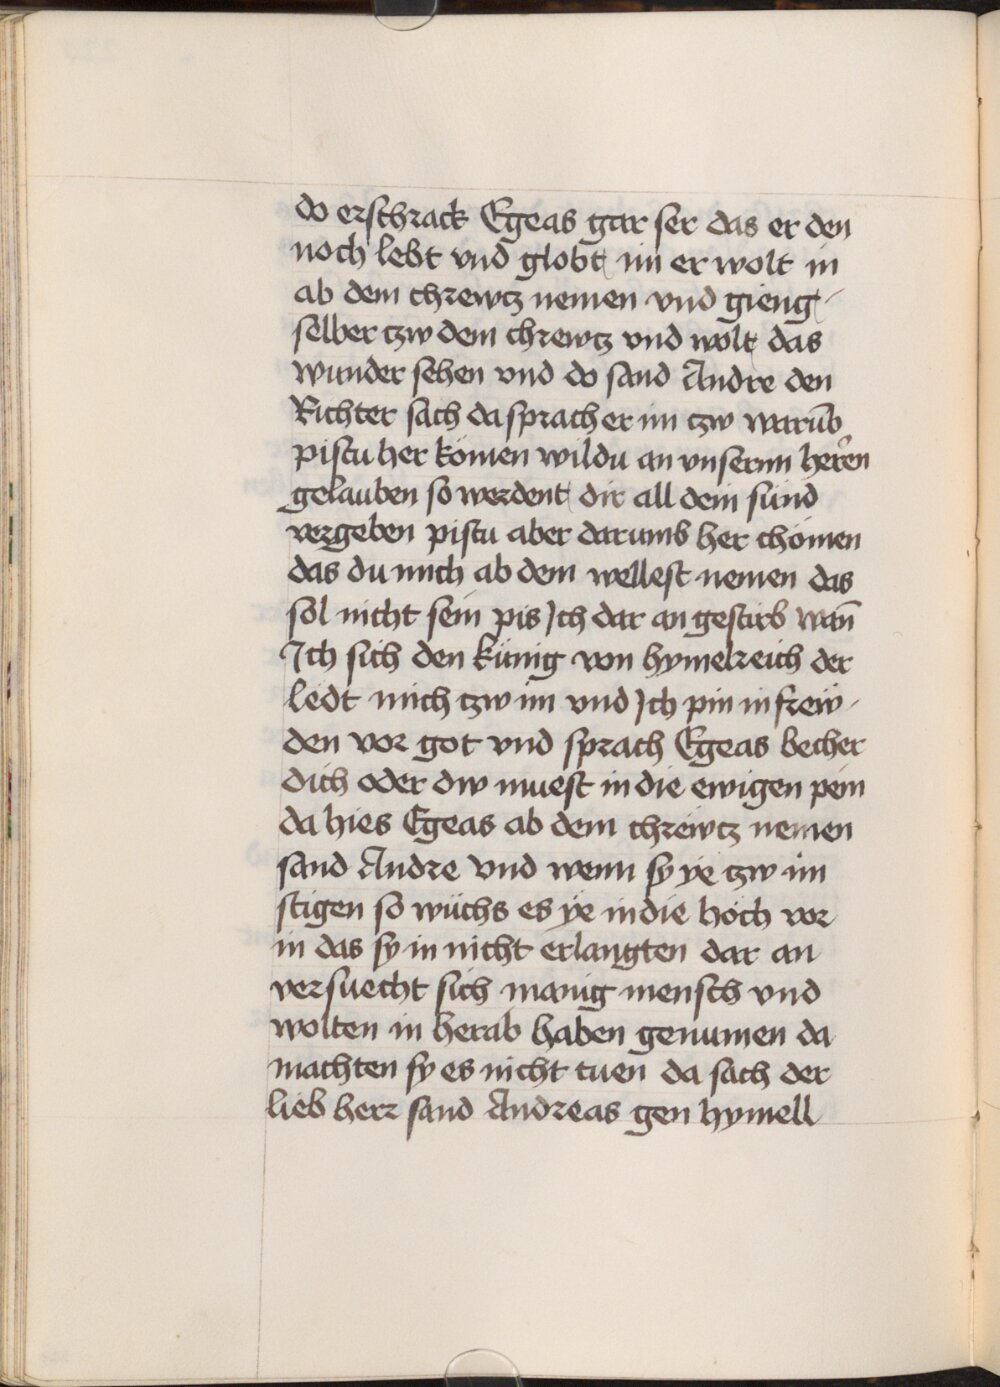 do erschrack Egeas gar ser das er den
noch lebt vnd globt im er wolt in
ab dem chrewcz nemen vnd gieng
selber czw dem chrewcz vnd wolt das
wunder sehen vnd do sand Andre den
Richter sach da sprach er im czw warūb
pistu her kömen wildu an vnsernn herren
gelauben so werdent dir all dein sünd
vergeben pistu aber darumb her chömen
das du mich ab dem wellest nemen das
sol nicht sein pis Ich dar an gestirb wañ
Ich sich den künig von hymelreich der
ledt mich czw im vnd Ich pin in frew-
den vor got vnd sprach Egeas becher
dich oder dw muest in die ewigen pein
da hies Egeas ab dem chrewcz nemen
sand Andre vnd wenn sy ye czw im
stigen so wüchs es ye in die höch vor
in das sy in nicht erlangten dar an
versuecht sich manig mensch vnd
wolten in herab haben genumen da
machten sy es nicht tuen da sach der
lieb herr sand Andreas gen hymell